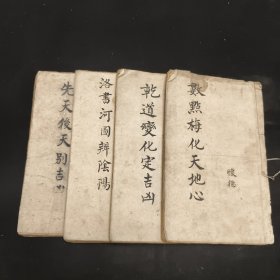 數點梅化天地心
乾道變化定吉凶
洛書河圖辨陰陽
先天後天別吉凶